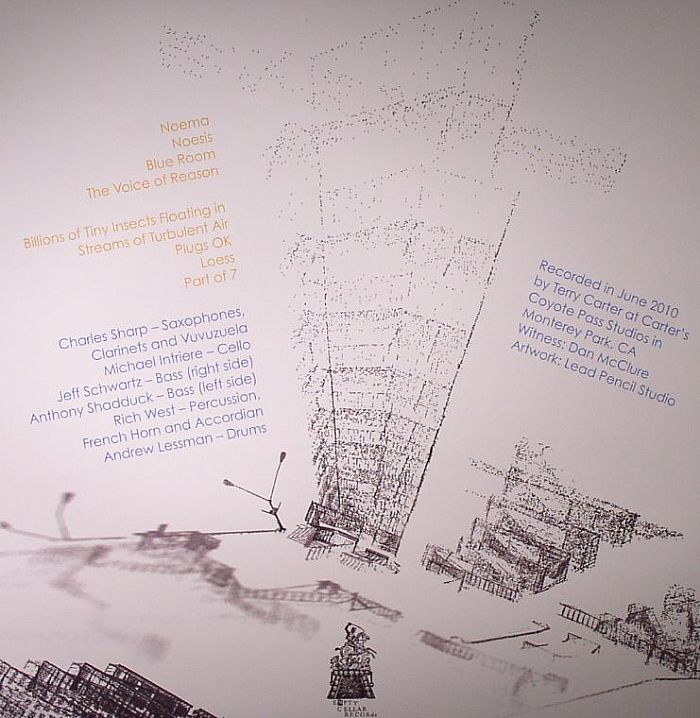 Noema
Noesis
Blue Room
The Voice of Reason
Billions of Tiny Insects Floating in
Streams of Turbulent Air
Plugs OK
Loess
Part of 7
Charles Sharp – Saxophones,
Clarinets and Vuvuzuela
Michael Intriere – Cello
Jeff Schwartz – Bass (right side)
Anthony Shadduck – Bass (left side)
Rich West – Percussion,
French Horn and Accordian
Andrew Lessman – Drums
Recorded in June 2010
by Terry Carter at Carter's
Coyote Pass Studios in
Monterey Park, CA
Witness: Dan McClure
Artwork: Lead Pencil Studio
EMPTY
CELLAR
RECORDS